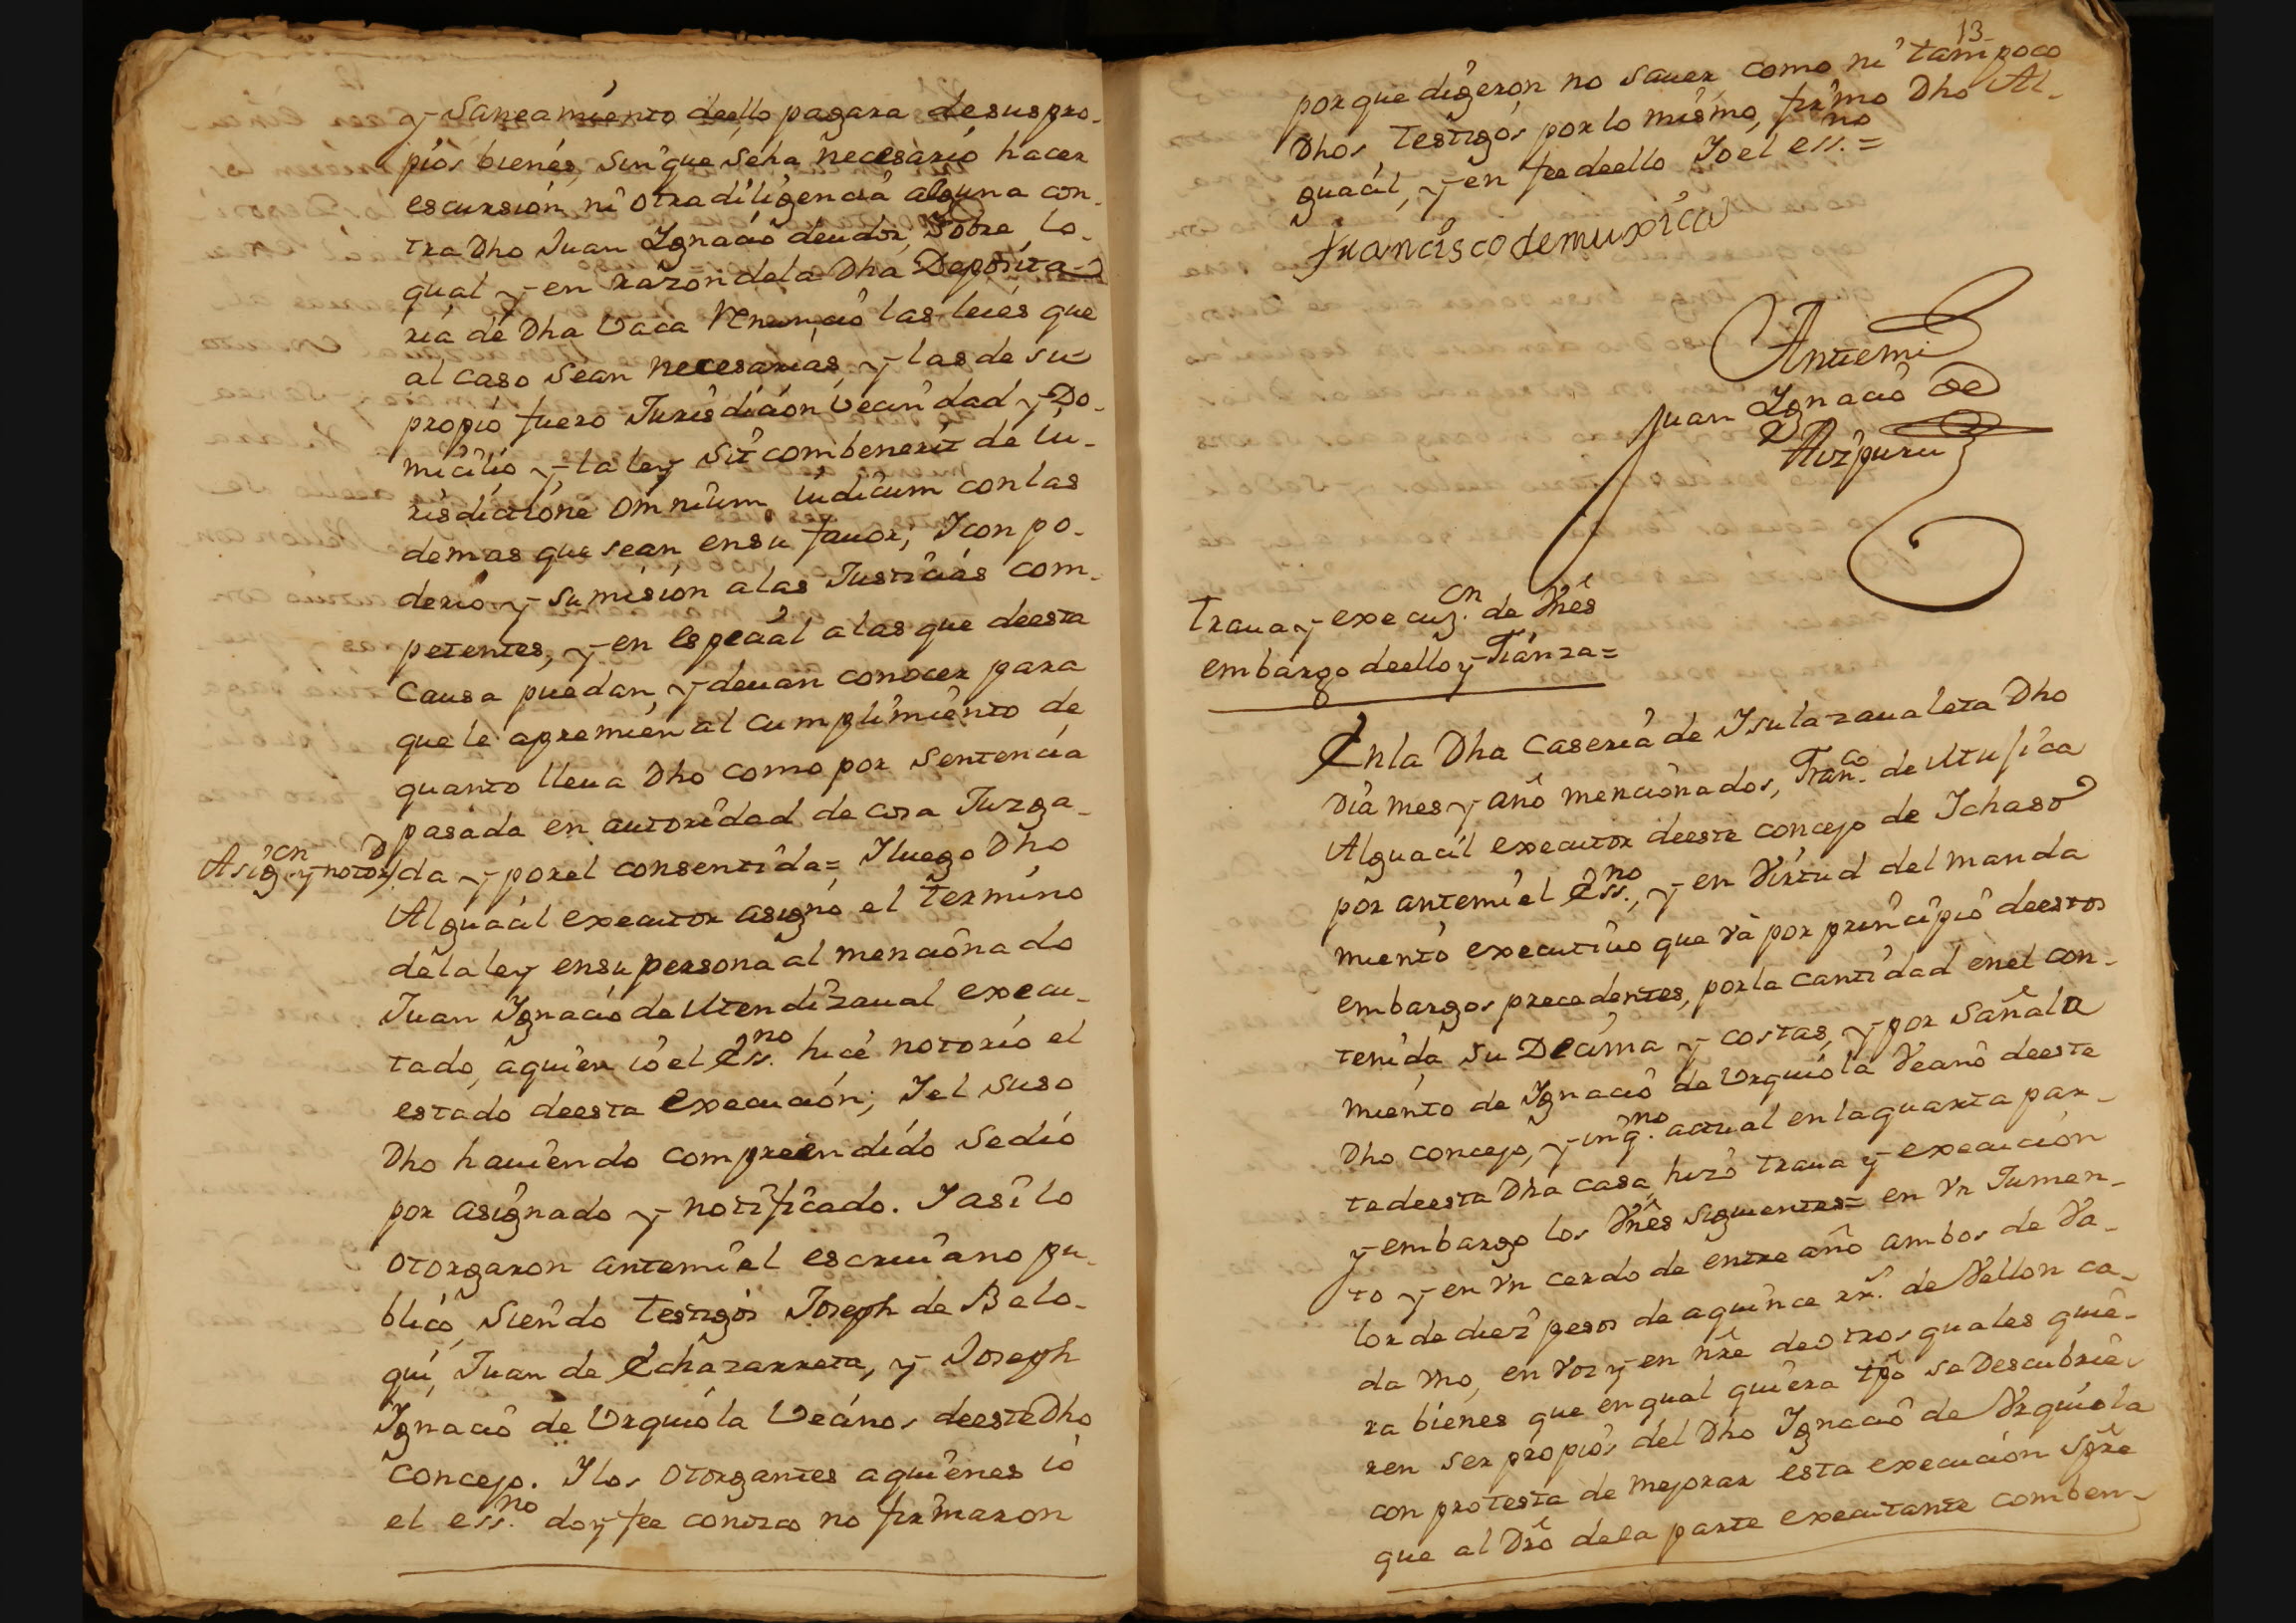 y Saneamiento deello pagara de sus pro-
pios bienes, sin que seha necesario hacer
escursion ni otra diligencia alguna con-
tra Dho Juan Ignacio deudor, Sobre lo
qual y en razon dela Dha Deposita-
ria de Dha Vaca Renuncio las leies que
al caso sean necesarias, y las de su
propio fuero Jurisdicion Vecindad y Do-
micilio y la ley Sit combenerit de Iu-
risdictione omnium iudicum con las
demas que sean ensu fauor; I con po-
derio y sumision a las Justicias com-
petentes, y en especial a las que deesta
Causa puedan, y deuan conocer para
que le apremien al cumplimiento de
quanto lleua Dho como por Sentencia
pasada en autoridad de cosa Juzga-
Asig.cn y notor.d
da y por el consentida= I luego Dho
Alguacil executor asigno el termino
dela ley ensu persona al mencionado
Juan Ignacio de Utendizaual execu-
tado, aquien io el Ess.no hice notorio el
estado deesta execucion; I el suso
Dho hauiendo compreendido se dio
por asignado y notificado. I asi lo
otorgaron antemi el escriuano pu-
blico, Siendo testigos Joseph de Belo-
qui, Juan de Echazarreta, y Joseph
Ignacio de Urquiola Vecinos deeste Dho
concejo. I los otorgantes aquienes io
el ess.no doy fee conozco no firmaron
13
porque digeron no sauer como ni tampoco
Dhos testigos por lo mismo, firmo Dho Al-
guacil, y en fee deello Io el ess.no =
Francisco de muxica
Antemi
Juan Ignacio de
Aizpuru
Traua y execuz.cn de Vnes
embargo deello y Fianza=
Enla Dha Caseria de Isulazaualeta Dho
dia mes y año mencionados, Fran.co de Musica
Alguacil executor deeste concejo de Ichaso
por antemi el Ess.no, y en Virtud del manda
miento executiuo que va por principio deestos
embargos precedentes, por la cantidad enel con-
tenida su Decima y costas, y por Señala
miento de Ignacio de Urquiola Vecino deeste
Dho concejo, y inq.no actual en la quarta par-
te deesta Dha casa, hizo traua y execucion
y embargo los Vnes siguientes= en vn Jumen-
to y en vn cerdo de entre año ambos de Va-
lor de diez pesos de aquince rr.s de Vellon ca-
da vno, en voz y en nre de otros quales quie-
ra bienes que en qual quiera tpo se Descubrie-
ren ser propios del Dho Ignacio de Vrquiola
con protesta de mejorar esta execucion sgre
que al Dro dela parte executante comben-